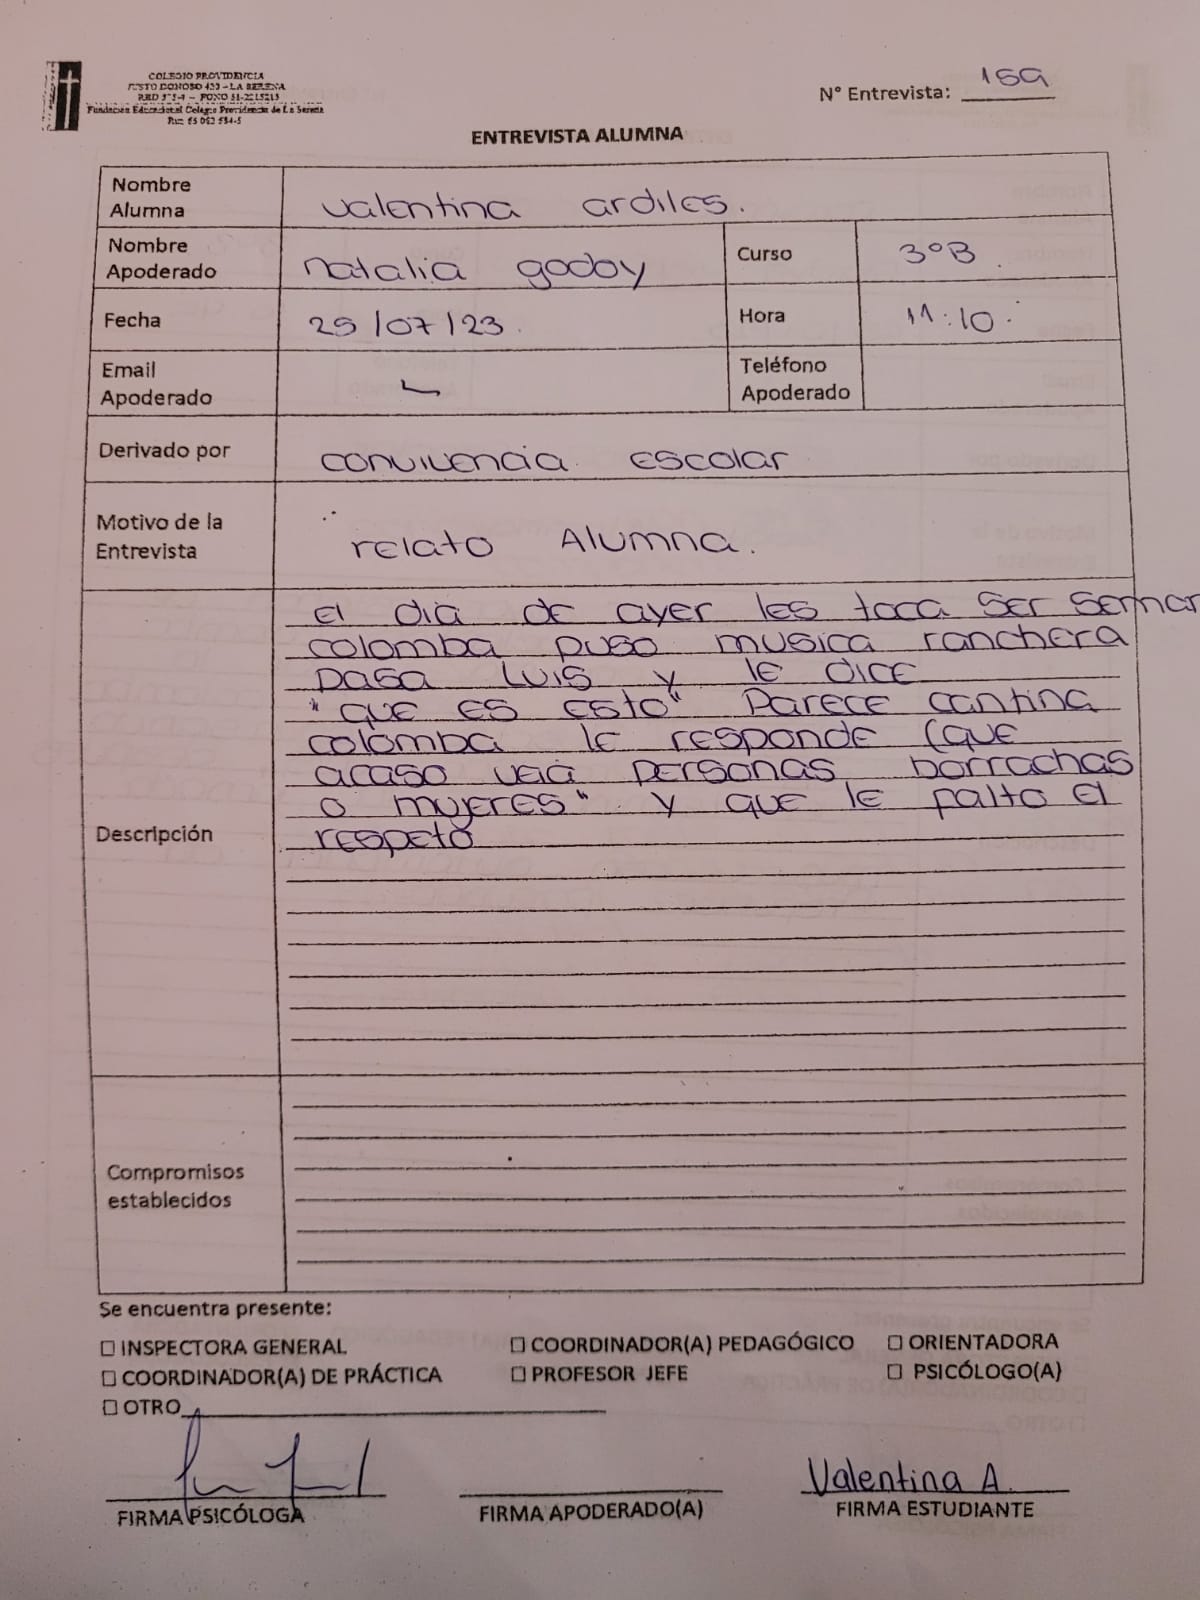 COLEGIO PROVIDENCIA
JUSTO DONOSO 420 – LA SERENA
FONO 51-2215213
Fundación Educacional Colegio Providencia de La Serena
N° Entrevista: 159
ENTREVISTA ALUMNA
Nombre Alumna valentina ardiles.
Nombre Apoderado natalia godoy Curso 3°B.
Fecha 25/07/23. Hora 11:10.
Email Apoderado Teléfono Apoderado
Derivado por convivencia escolar
Motivo de la Entrevista relato Alumna.
Descripción
El dia de ayer les toca ser
colomba puso musica ranchera
Pasa Luis y le dice
"que es esto" Parece cantina
colomba le responde (que
acaso veia personas borrachas
o mujeres" y que le falto el
respeto
Compromisos establecidos
Se encuentra presente:
☐ INSPECTORA GENERAL ☐ COORDINADOR(A) PEDAGÓGICO ☐ ORIENTADORA
☐ COORDINADOR(A) DE PRÁCTICA ☐ PROFESOR JEFE ☐ PSICÓLOGO(A)
☐ OTRO
Valentina A.
FIRMA PSICÓLOGA FIRMA APODERADO(A) FIRMA ESTUDIANTE